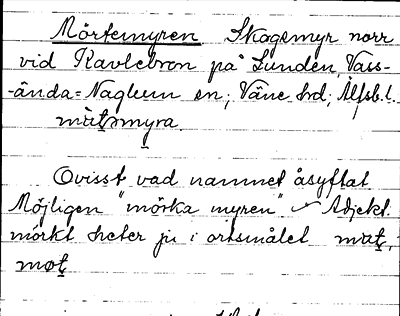 Mörtemyren Skogsmyr norr
vid Kavlebron på Lunden, Vass-
-ända=Naglum sn; Väne hd; Älfsb. l.
mätmyra
Ovisst vad namnet åsyftat
Möjligen "mörka myren" Adjekt.
mörkt heter ju i ortsmålet mät,
mot